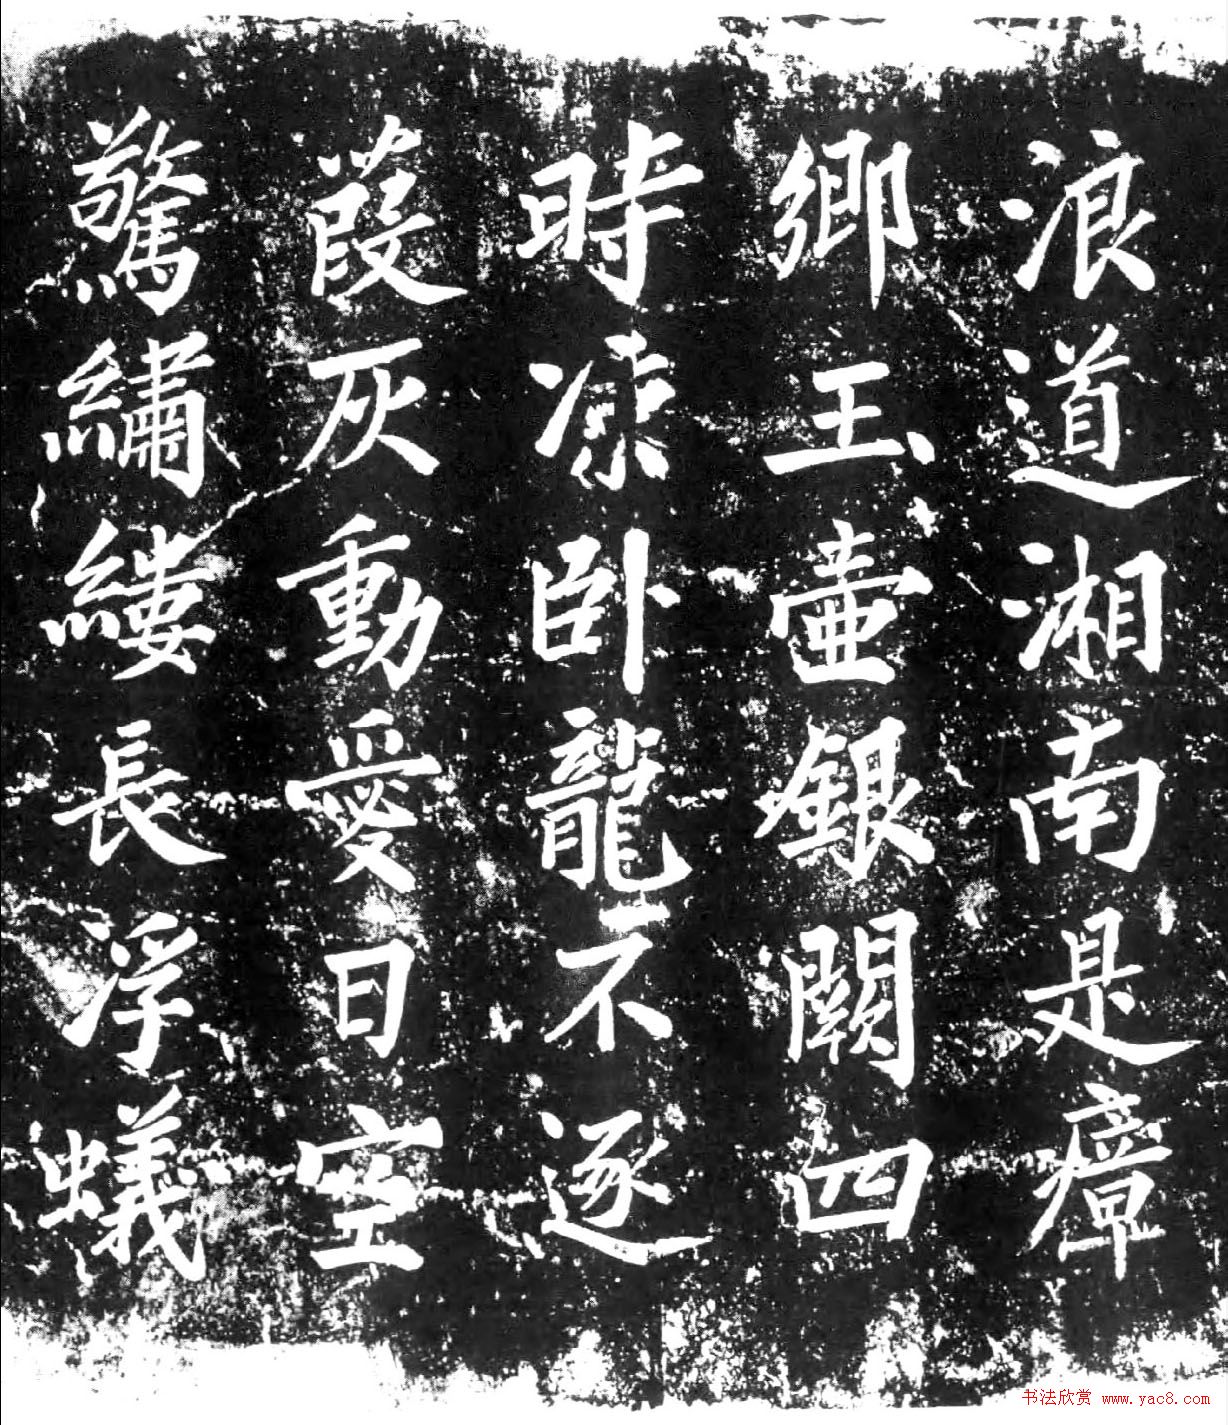 浪道湘南是瘴
鄉玉壺銀闕四
時凉卧龍不逐
葭灰動愛日空
驚繡縷長浮蟻
书法欣赏 www.yac8.com